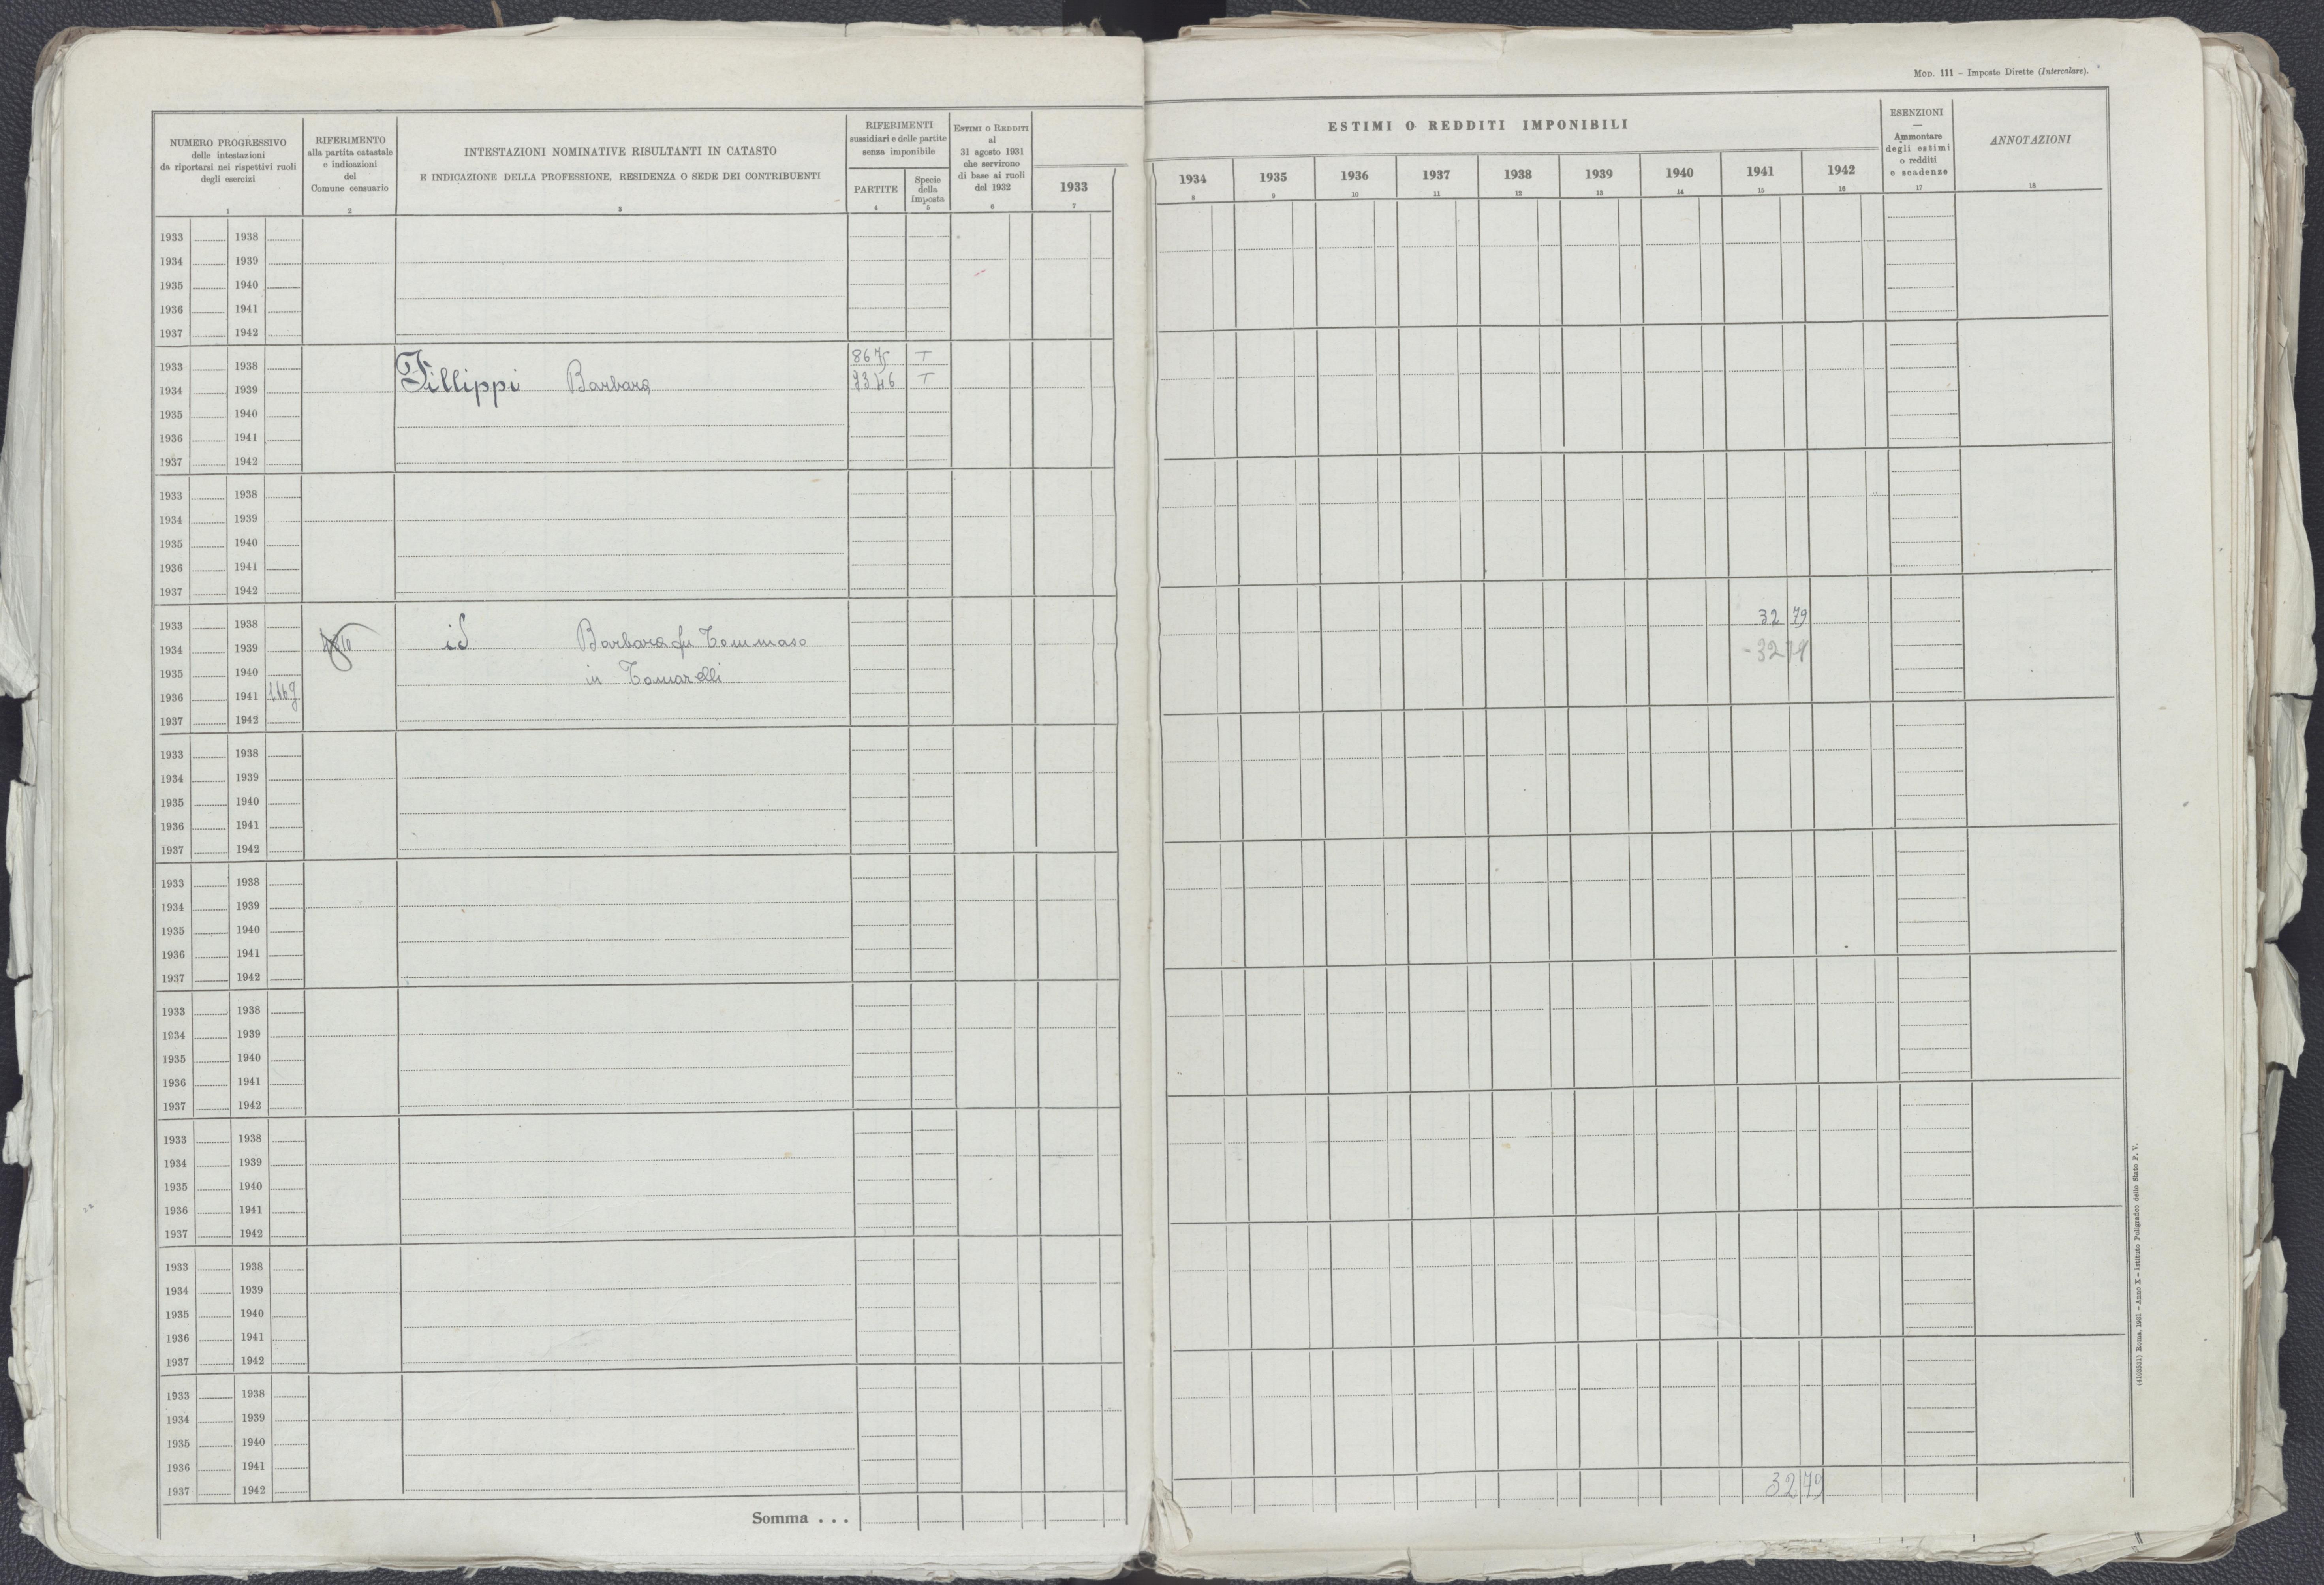 Mod. 111 – Imposte Dirette (Intercalare).
NUMERO PROGRESSIVO
delle intestazioni
da riportarsi nei rispettivi ruoli
degli esercizi
1
RIFERIMENTO
alla partita catastale
e indicazioni
del
Comune censuario
2
INTESTAZIONI NOMINATIVE RISULTANTI IN CATASTO
E INDICAZIONE DELLA PROFESSIONE, RESIDENZA O SEDE DEI CONTRIBUENTI
3
RIFERIMENTI
sussidiari e delle partite
senza imponibile
PARTITE
4
Specie
della
imposta
5
Estimi o Redditi
al
31 agosto 1931
che servirono
di base ai ruoli
del 1932
6
1933
7
ESTIMI O REDDITI IMPONIBILI
1934 1935 1936 1937 1938 1939 1940 1941 1942
8 9 10 11 12 13 14 15 16
ESENZIONI
—
Ammontare
degli estimi
o redditi
e scadenze
17
ANNOTAZIONI
18
1933 1938
1934 1939
1935 1940
1936 1941
1937 1942
1933 1938 8675 T
1934 1939 Fillippi Barbara 3346 T
1935 1940
1936 1941
1937 1942
1933 1938
1934 1939
1935 1940
1936 1941
1937 1942
1933 1938 32 79
1934 1939 id Barbara fu Tommaso - 32 79
1935 1940 in Tomarelli
1936 1941
1937 1942
1933 1938
1934 1939
1935 1940
1936 1941
1937 1942
1933 1938
1934 1939
1935 1940
1936 1941
1937 1942
1933 1938
1934 1939
1935 1940
1936 1941
1937 1942
1933 1938
1934 1939
1935 1940
1936 1941
1937 1942
1933 1938
1934 1939
1935 1940
1936 1941
1937 1942
1933 1938
1934 1939
1935 1940
1936 1941
1937 1942
Somma . . . 32 79
Roma, 1931 – Anno X – Istituto Poligrafico dello Stato P. V.